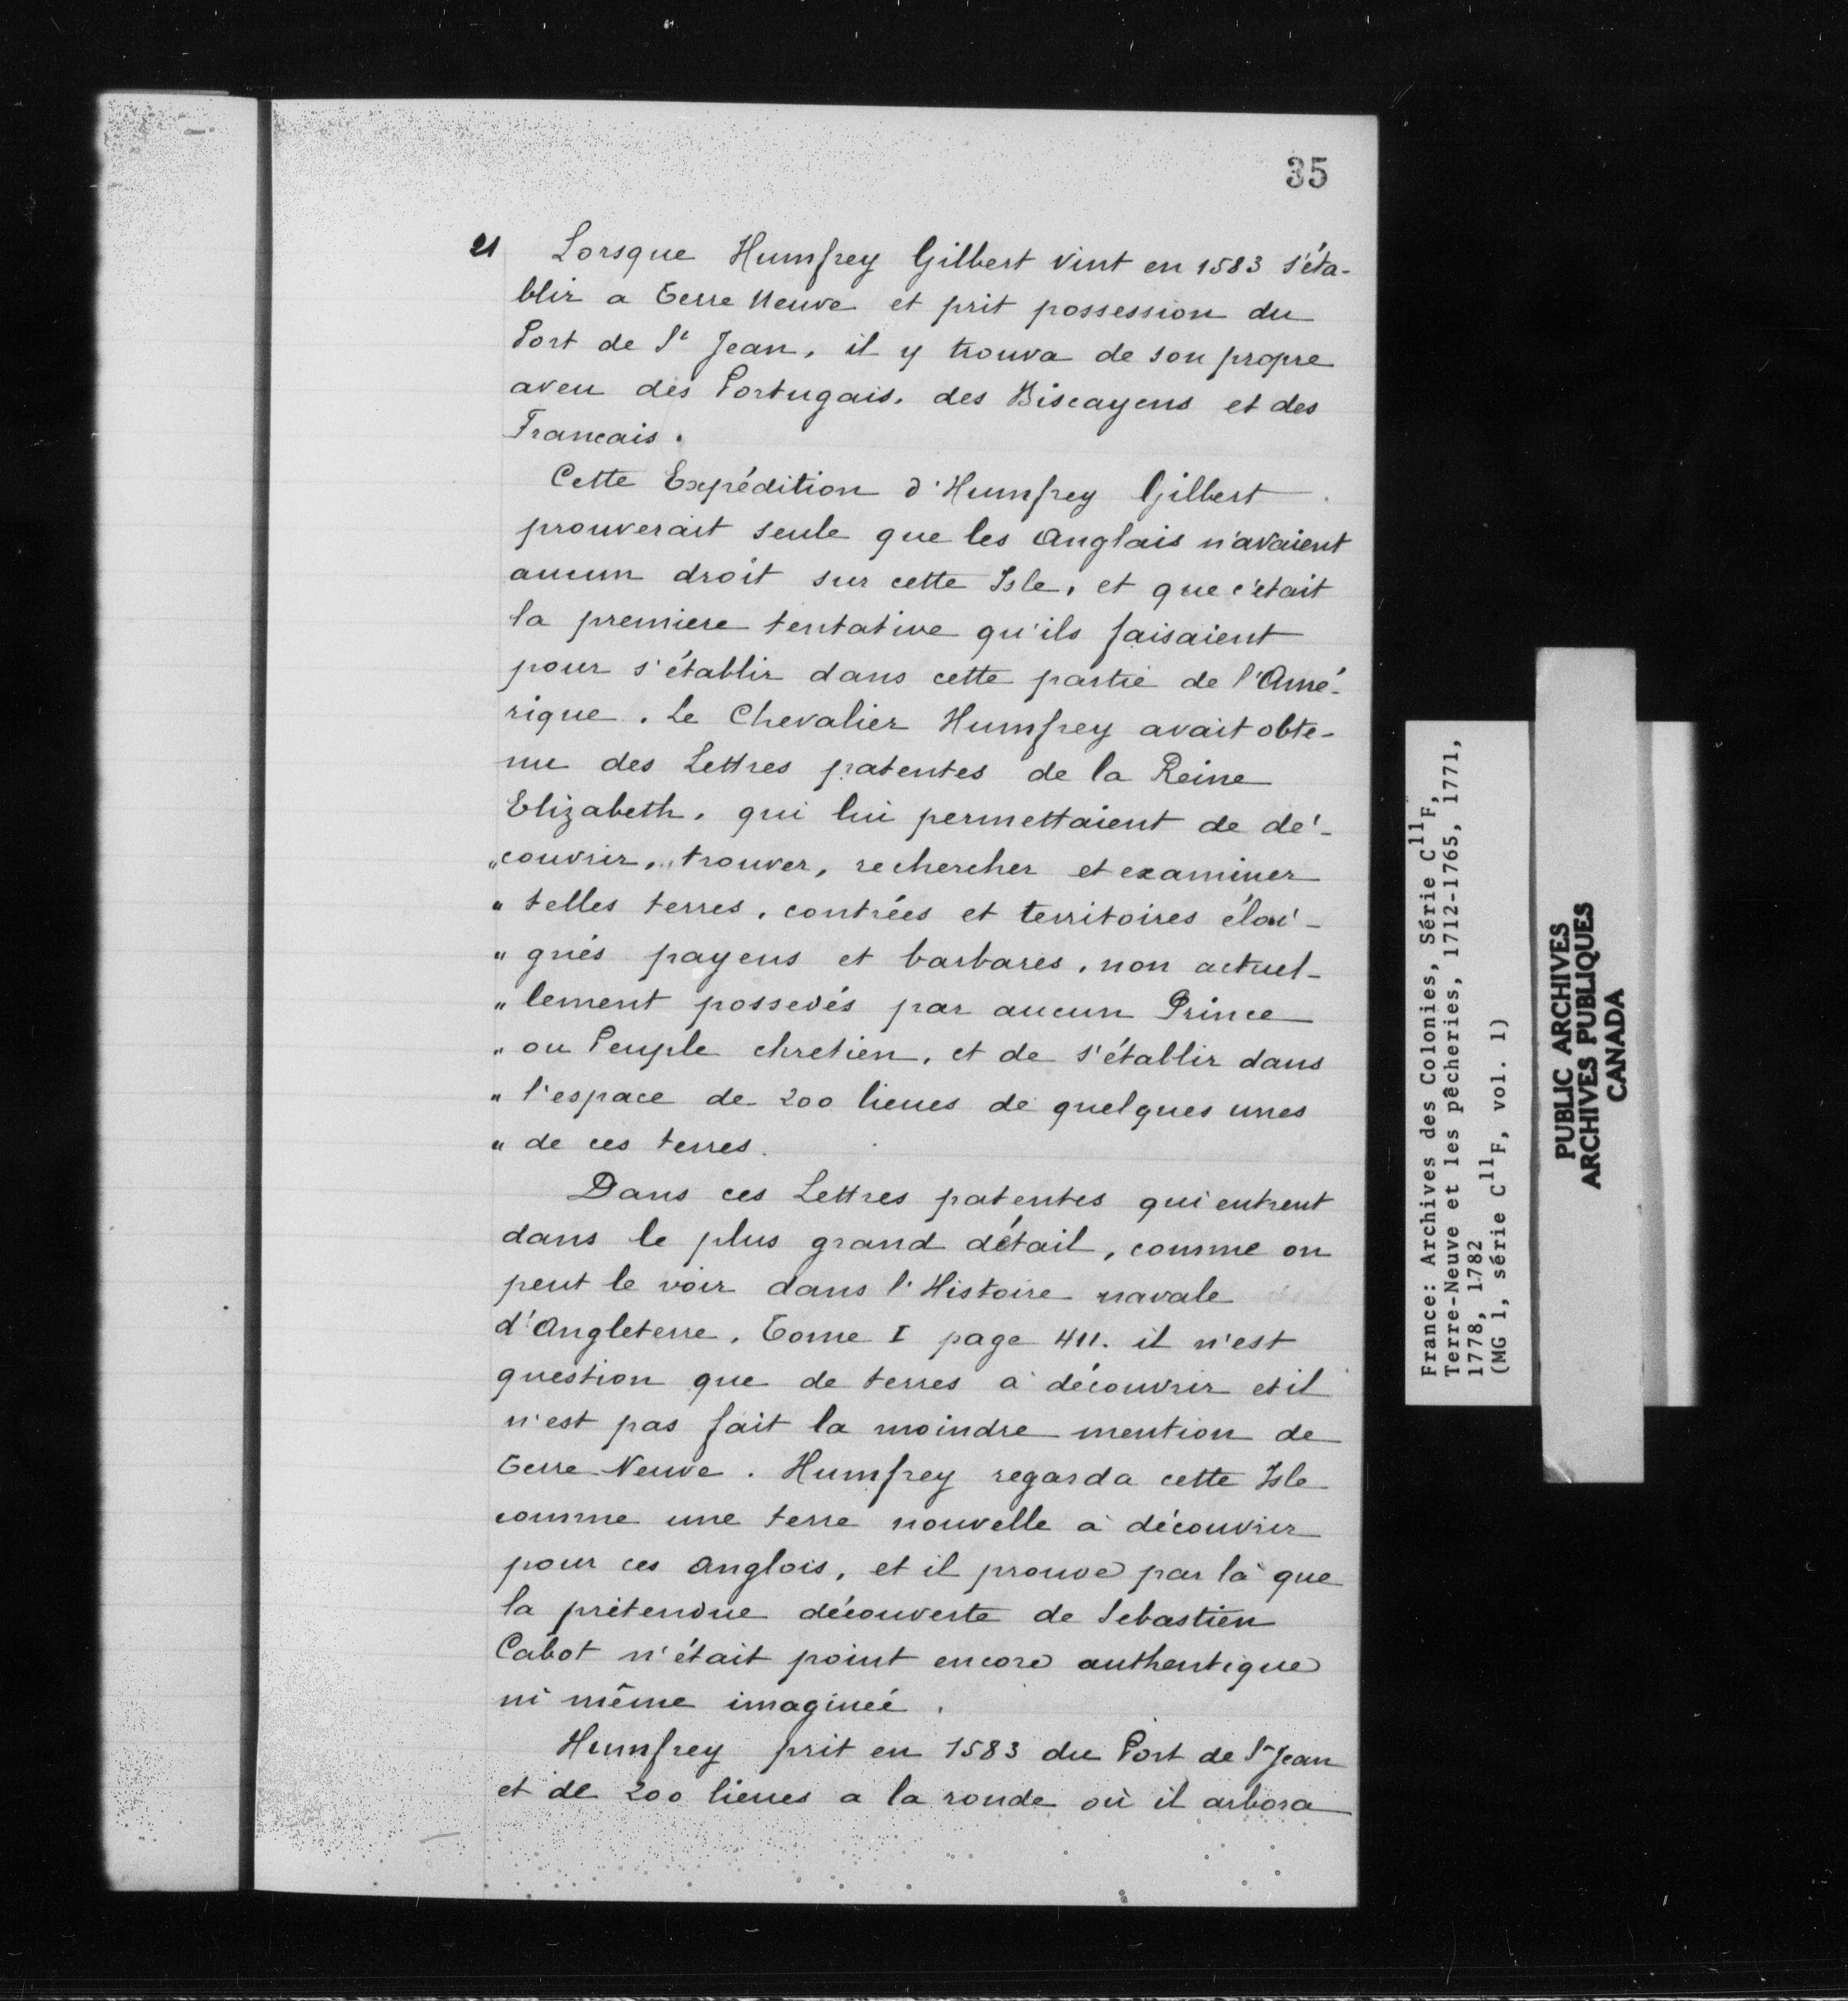 35
21 Lorsque Humfrey Gilbert vint en 1583 s'éta-
blir a Terre Neuve et prit possession du
Port de St Jean, il y trouva de son propre
aveu des Portugais, des Biscayens et des
Francais.
Cette Expédition d'Humfrey Gilbert
prouverait seule que les Anglais n'avaient
aucun droit sur cette Isle, et que c'était
la premiere tentative qu'ils faisaient
pour s'établir dans cette partie de l'Amé-
rique. Le Chevalier Humfrey avait obte-
nu des Lettres patentes de la Reine
Elizabeth, qui lui permettaient de dé-
„couvrir, trouver, rechercher et examiner
„ telles terres, contrées et territoires éloi-
„ gnés payens et barbares, non actuel-
„ lement possedés par aucun Prince
„ ou Peuple chretien, et de s'établir dans
„ l'espace de 200 lieues de quelques unes
„ de ces terres.
Dans ces Lettres patentes qui entrent
dans le plus grand détail, comme on
peut le voir dans l'Histoire navale
d'Angleterre, Tome I page 411. il n'est
question que de terres à découvrir et il
n'est pas fait la moindre mention de
Terre Neuve. Humfrey regarda cette Isle
comme une terre nouvelle à découvrir
pour ces Anglois, et il prouve par là que
la prétendue découverte de Sebastien
Cabot n'était point encore authentique
ni même imaginée.
Humfrey prit en 1583 du Port de St Jean
et de 200 lieues a la ronde où il arbora
France: Archives des Colonies, Série C11F,
Terre-Neuve et les pêcheries, 1712-1765, 1771,
1778, 1782
(MG 1, série C11F, vol. 1)
PUBLIC ARCHIVES
ARCHIVES PUBLIQUES
CANADA